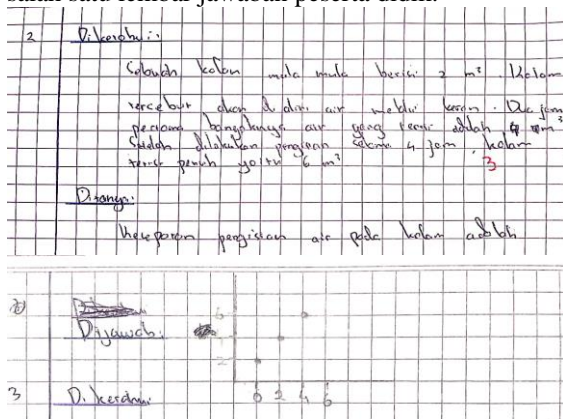 salah satu lembar jawaban peserta didik.
2 Diketahui:
Sebuah kolam mula mula berisi 2 m³. Kolam
tersebut akan di dalam air melalui keran. Dua jam
pertama banyaknya air yang terisi adalah 4 m³
Sudah dilakukan pengisian selama 4 jam, kolam
penuh yaitu 6 m³
3
Ditanya:
Kecepatan pengisian air pada kolam adalah
2)
Dijawab:
6
2
0 2 4 6
3 Diketahui